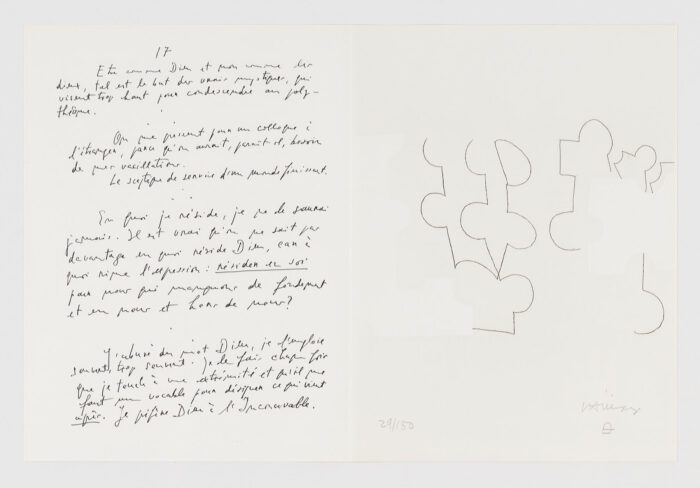 17
Etre comme Dieu et non comme les
dieux, tel est le but des vrais mystiques, qui
visent trop haut pour condescendre au poly-
théisme.
On me pressent pour un colloque à
l'étranger, parce qu'on aurait, paraît-il, besoin
de mes vacillations.
Le sceptique de service d'un monde finissant.
En quoi je réside, je ne le saurai
jamais. Il est vrai qu'on ne sait pas
davantage en quoi réside Dieu, car à
quoi rime l'expression : résider en soi
pour nous qui manquons de fondement
et en nous et hors de nous?
J'abuse du mot Dieu, je l'emploie
souvent, trop souvent. Je le fais chaque fois
que je touche à une extrémité et qu'il me
faut un vocable pour désigner ce qui vient
après. Je préfère Dieu à l'Inconcevable.
29/150